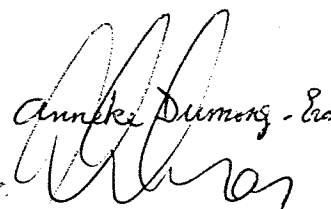 Anneke Dumong - Era